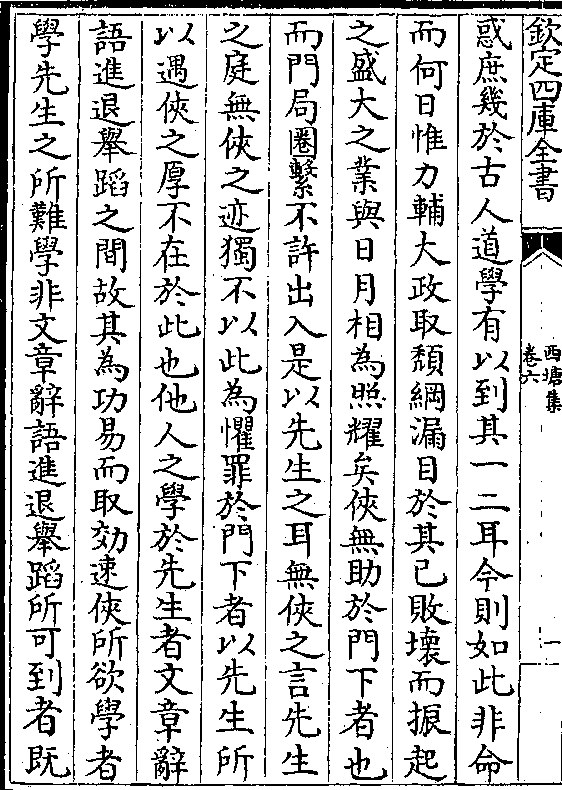 欽定四庫全書
西塘集
卷六
一
惑庶幾於古人道學有以到其一二耳今則如此非命
而何日惟力輔大政取頽綱漏目於其已敗壞而振起
之盛大之業與日月相為照耀矣俠無助於門下者也
而門局圈繫不許出入是以先生之耳無俠之言先生
之庭無俠之迹獨不以此為懼罪於門下者以先生所
以遇俠之厚不在於此也他人之學於先生者文章辭
語進退舉蹈之間故其為功易而取効速俠所欲學者
學先生之所難學非文章辭語進退舉蹈所可到者既